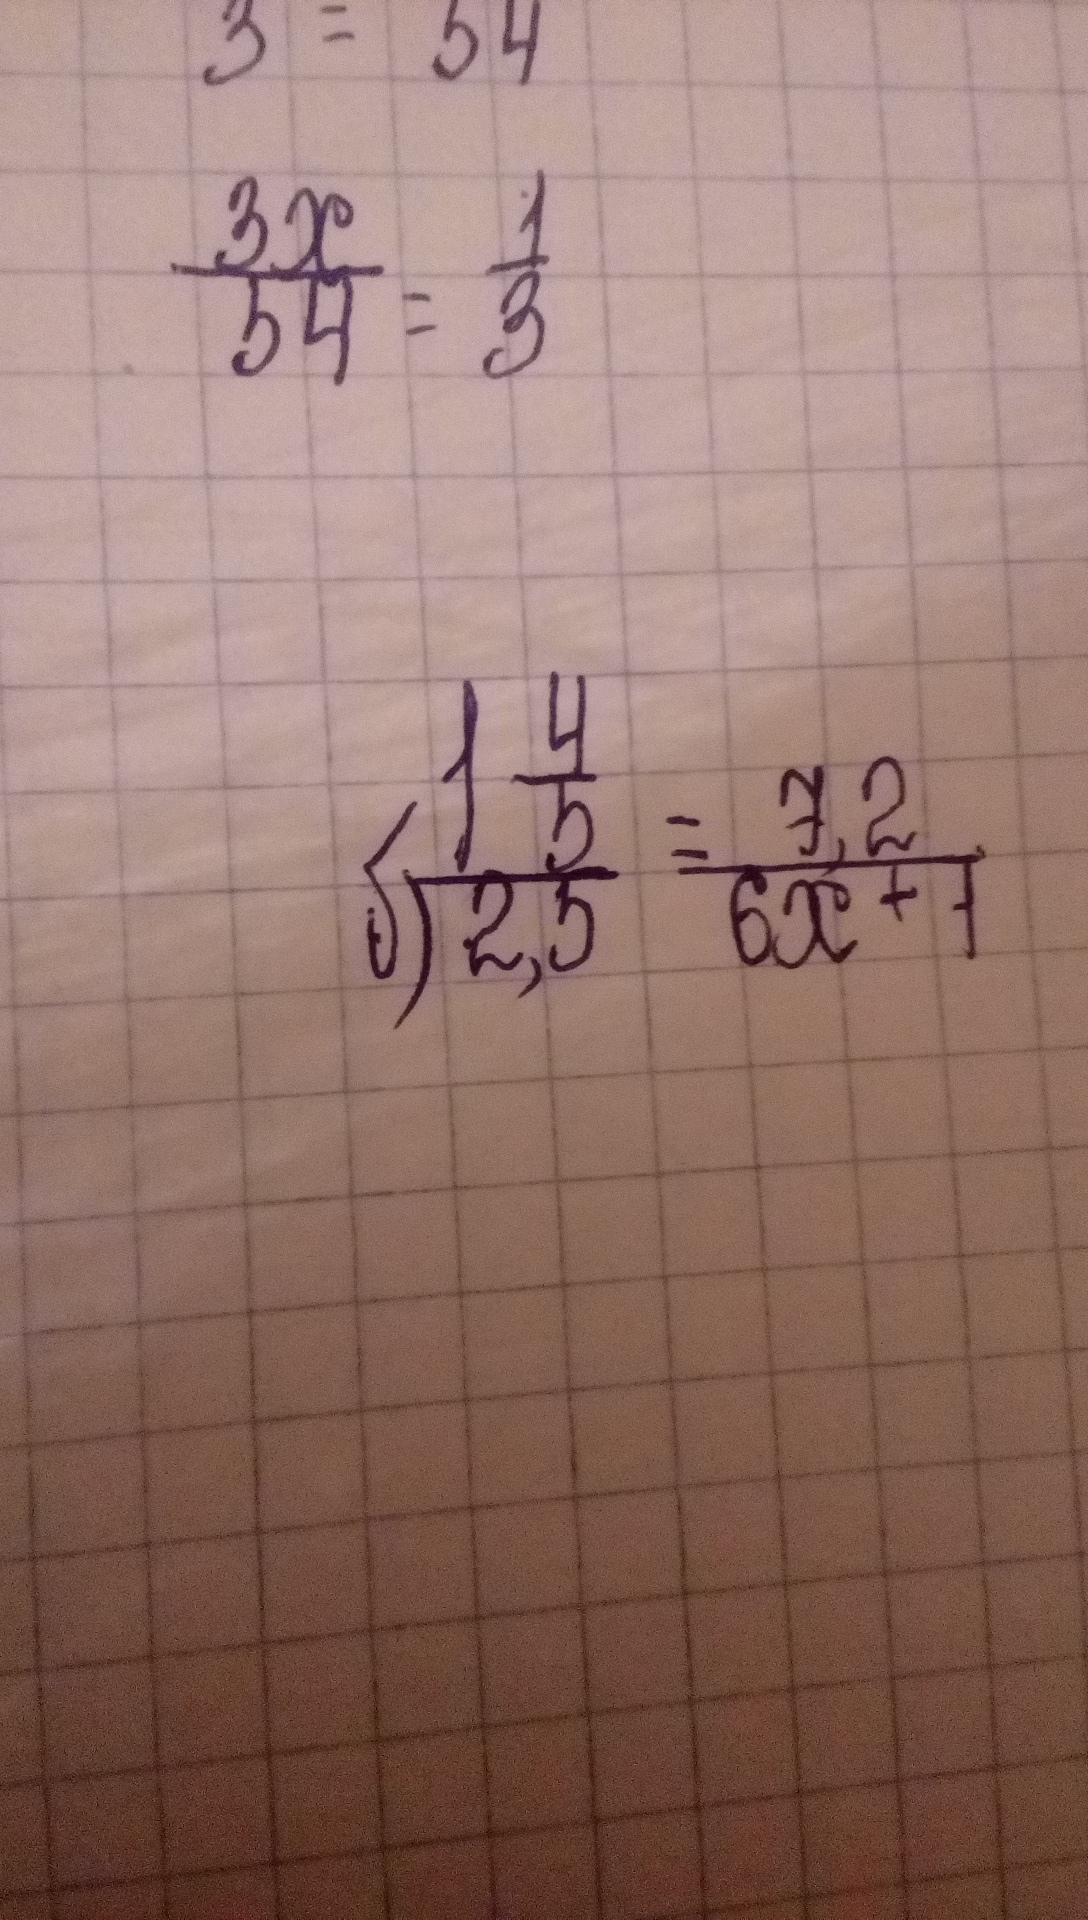 3 = 54
3x/54 = 1/3
б) 1 4/5 / 2,5 = 7,2 / 6x + 7